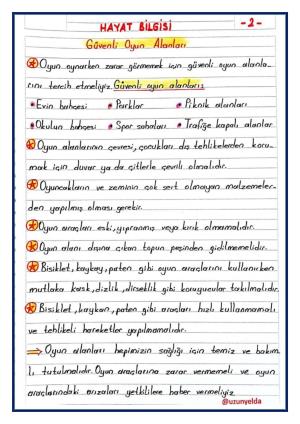 HAYAT BİLGİSİ
-2-
Güvenli Oyun Alanları
Oyun oynarken zarar görmemek için güvenli oyun alanla-
rını tercih etmeliyiz. Güvenli oyun alanları;
• Evin bahçesi • Parklar • Piknik alanları
• Okulun bahçesi • Spor sahaları • Trafiğe kapalı alanlar
Oyun alanlarının çevresi, çocukları dış tehlikelerden koru-
mak için duvar ya da çitlerle çevrili olmalıdır.
Oyuncakların ve zeminin çok sert olmayan malzemeler-
den yapılmış olması gerekir.
Oyun araçları eski, yıpranmış veya kırık olmamalıdır.
Oyun alanı dışına çıkan topun peşinden gidilmemelidir.
Bisiklet, kaykay, paten gibi oyun araçlarını kullanırken
mutlaka kask, dizlik, dirseklik gibi koruyucular takılmalıdır.
Bisiklet, kaykay, paten gibi araçları hızlı kullanmamalı
ve tehlikeli hareketler yapılmamalıdır.
⇒ Oyun alanları hepimizin sağlığı için temiz ve bakım-
lı tutulmalıdır. Oyun araçlarına zarar vermemeli ve oyun
araçlarındaki arızaları yetkililere haber vermeliyiz
@uzunyelda